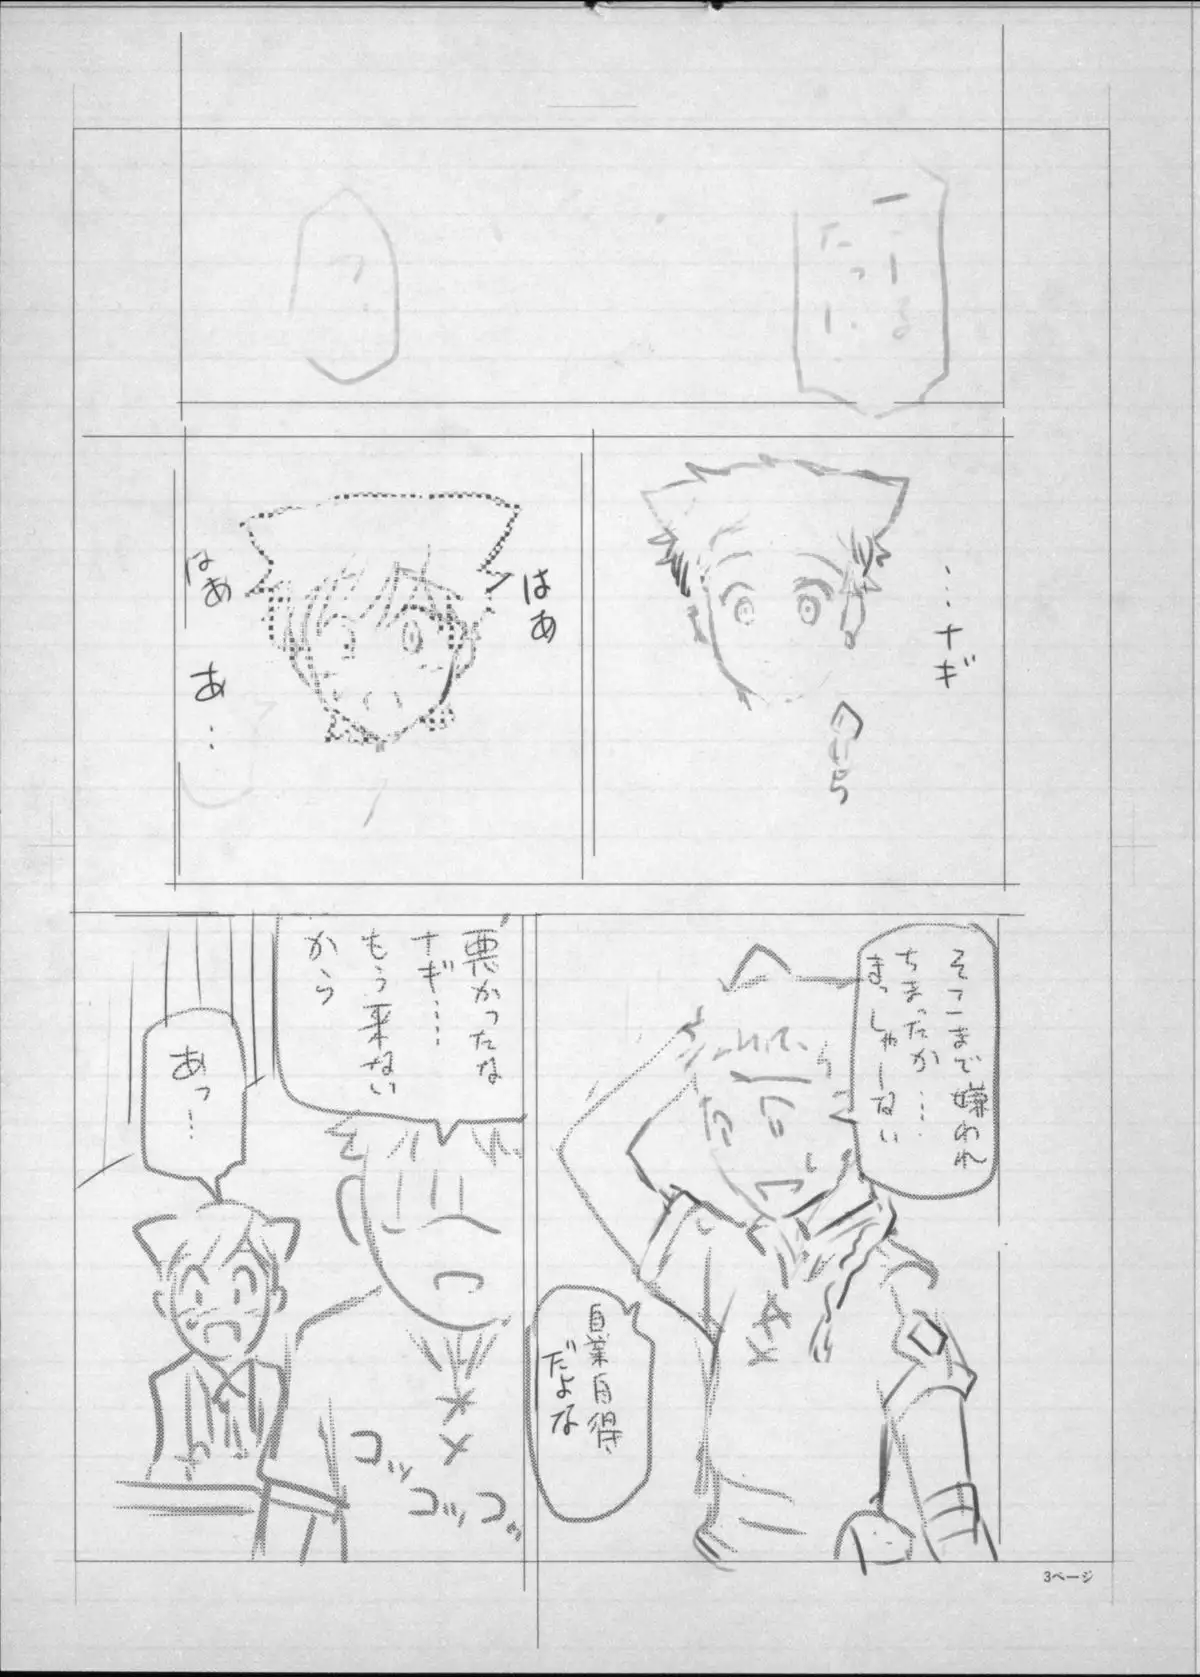 …ナギ
はあ
はあ
あ…
そこまで嫌われ
ちまったか…
まっしゃーない
自業自得
だよな
悪かったな
ナギ……
もう来ない
から
あっ…
コッ
コッ
コッ
3ページ